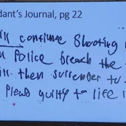 dant's Journal, pg 22
continue shooting
Police breach the
then surrender to
Plead guilty to life i